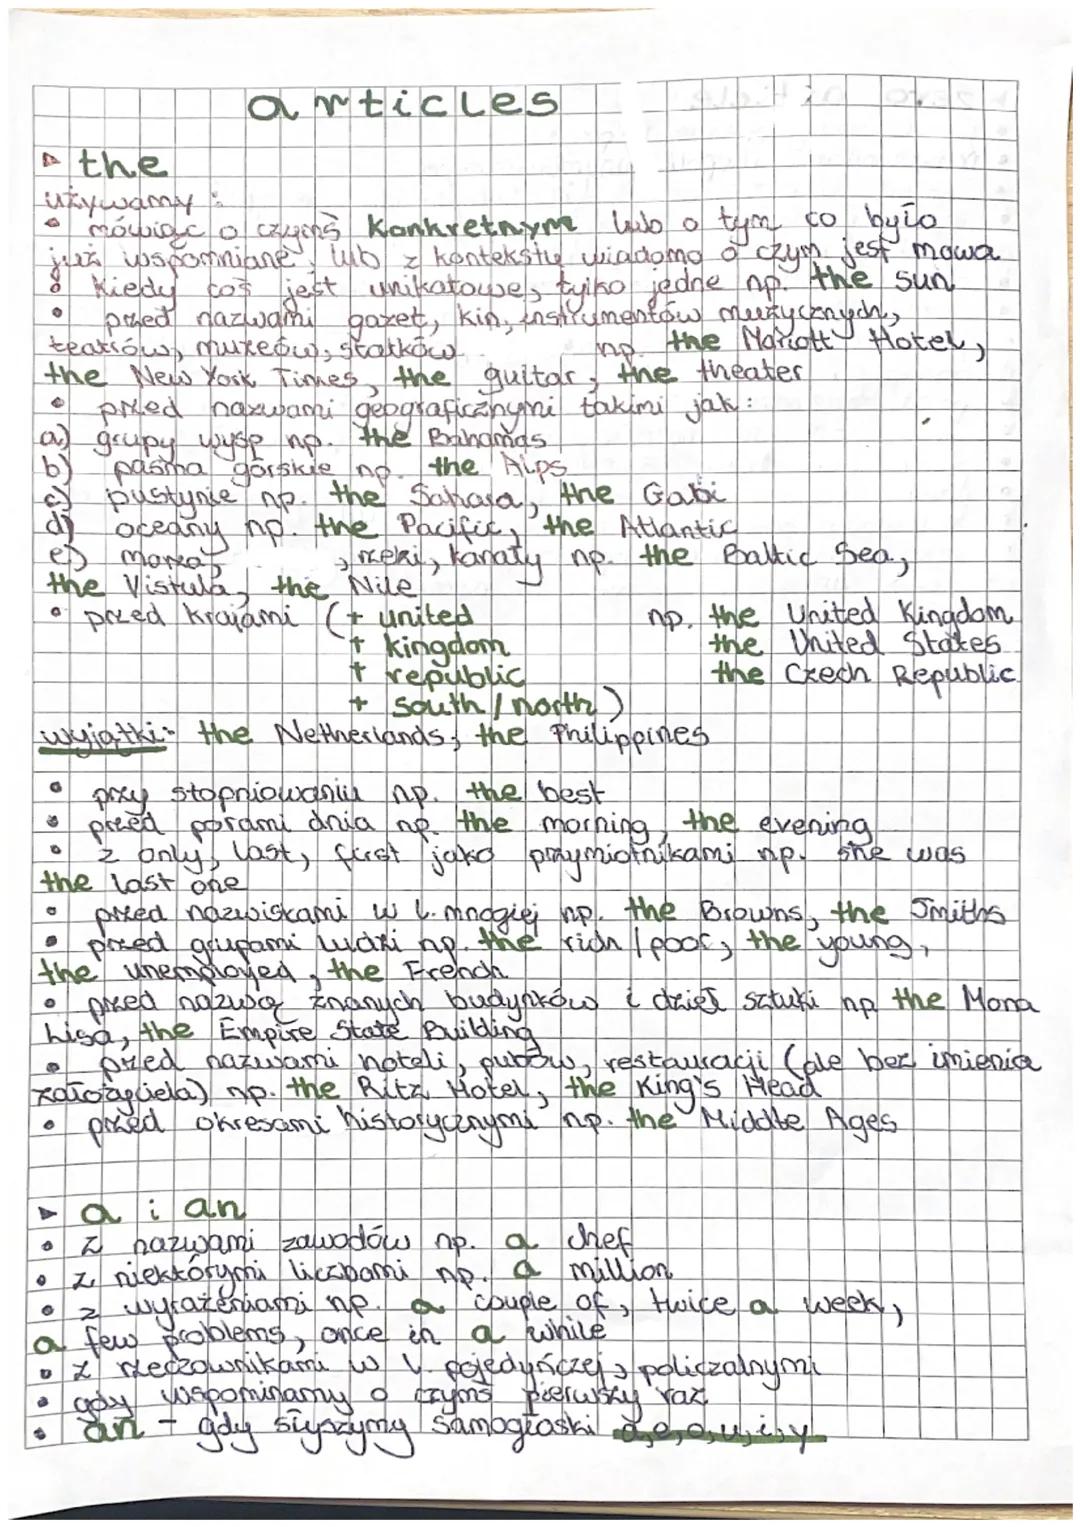 articles
the
używamy:
• mówiąc o czymś konkretnym lub o tym co było
już wspomniane, lub z kontekstu wiadomo o czym jest mowa
• kiedy coś jest unikatowe, tylko jedne np. the sun
• przed nazwami gazet, kin, instrumentów muzycznych,
teatrów, muzeów, statków np. the Mariott Hotel,
the New York Times, the guitar, the theater
• przed nazwami geograficznymi takimi jak:
a) grupy wysp np. the Bahamas
b) pasma górskie np. the Alps
c) pustynie np. the Sahara, the Gobi
d) oceany np. the Pacific, the Atlantic
e) morza, , rzeki, kanały np. the Baltic Sea,
the Vistula, the Nile
• przed krajami (+ united np. the United Kingdom
+ kingdom the United States
+ republic the Czech Republic
+ south / north)
wyjątki: the Netherlands, the Philippines
• przy stopniowaniu np. the best
• przed porami dnia np. the morning, the evening
• z only, last, first jako przymiotnikami np. she was
the last one
• przed nazwiskami w l. mnogiej np. the Browns, the Smiths
• przed grupami ludzi np. the rich / poor, the young,
the unemployed, the French
• przed nazwą znanych budynków i dzieł sztuki np. the Mona
Lisa, the Empire State Building
• przed nazwami hoteli, pubów, restauracji (ale bez imienia
założyciela) np. the Ritz Hotel, the King's Head
• przed okresami historycznymi np. the Middle Ages
a i an
• z nazwami zawodów np. a chef
• z niektórymi liczbami np. a million
• z wyrażeniami np. a couple of, twice a week,
a few problems, once in a while
• z rzeczownikami w l. pojedyńczej, policzalnymi
• gdy wspominamy o czymś pierwszy raz
• an - gdy słyszymy samogłoski a,e,o,u,i,y